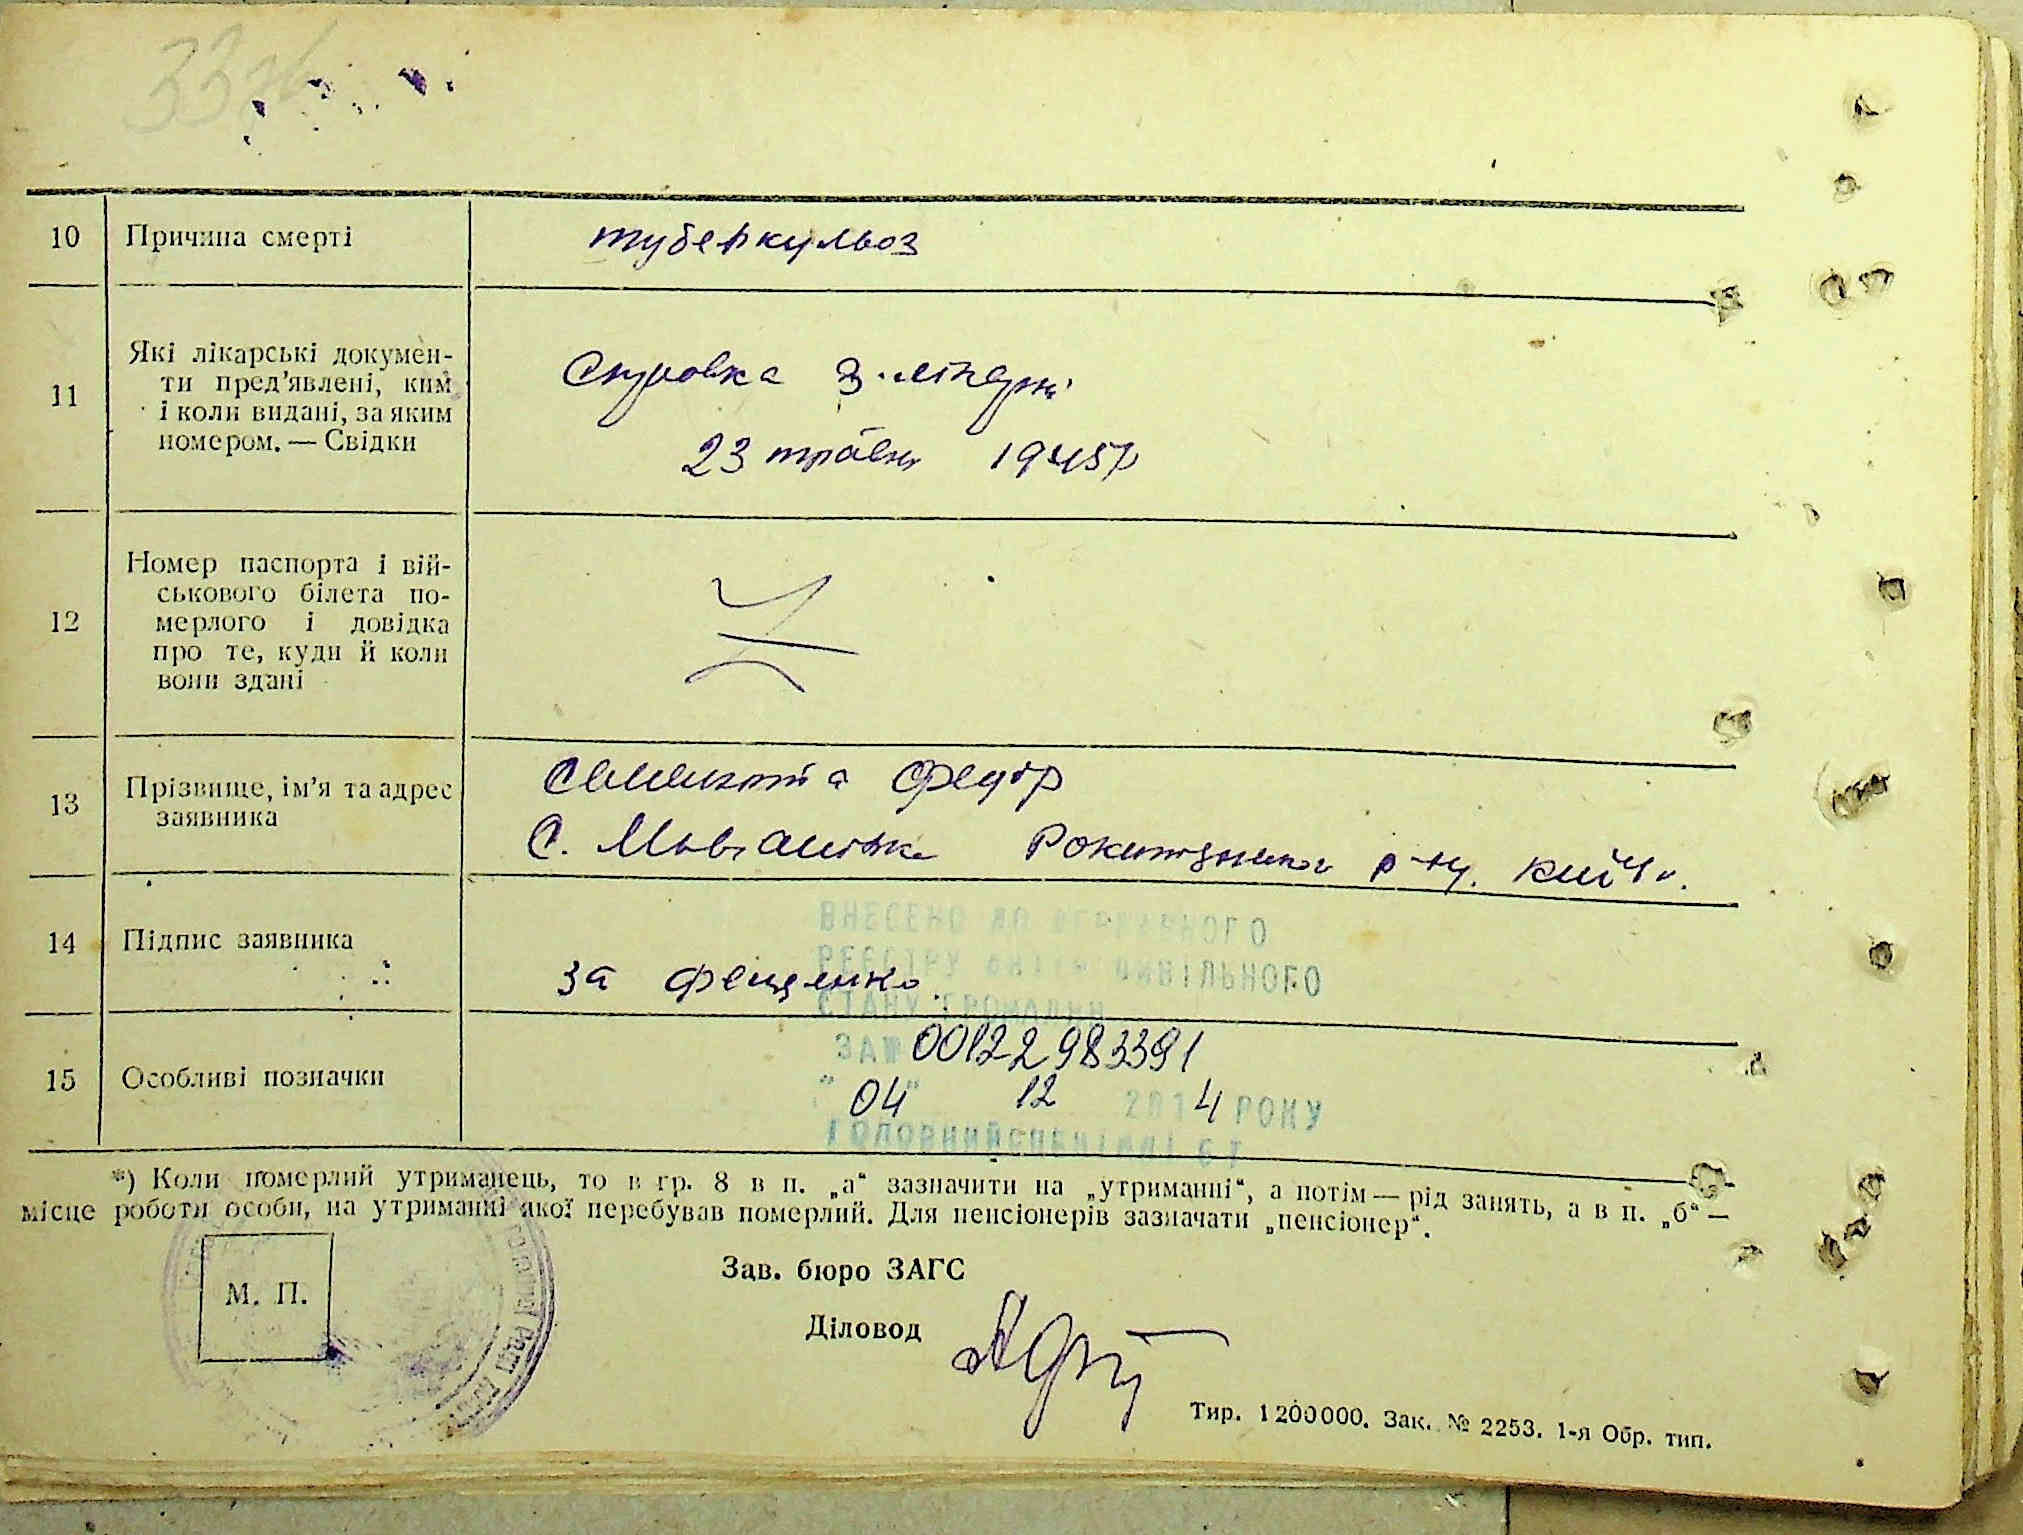 10 Причина смерті туберкульоз
11 Які лікарські докумен-
ти пред'явлені, ким
і коли видані, за яким
номером. — Свідки
Справка з лікарні
23 травня 1945р
12 Номер паспорта і вій-
ськового білета по-
мерлого і довідка
про те, куди й коли
вони здані
13 Прізвище, ім'я та адрес
заявника
Федір
С. Рокитнянського р-ну. Київ
14 Підпис заявника
за Фещенко
ВНЕСЕНО ДО ДЕРЖАВНОГО
РЕЄСТРУ АКТІВ ЦИВІЛЬНОГО
СТАНУ ГРОМАДЯН
ЗА № 00122983391
15 Особливі позначки
"04" 12 2014 РОКУ
ГОЛОВНИЙ СПЕЦІАЛІСТ
*) Коли померлий утриманець, то в гр. 8 в п. „а“ зазначити на „утриманні“, а потім — рід занять, а в п. „б“ —
місце роботи особи, на утриманні якої перебував померлий. Для пенсіонерів зазначати „пенсіонер“.
М. П.
Зав. бюро ЗАГС
Діловод
Тир. 1200000. Зак. № 2253. 1-я Обр. тип.